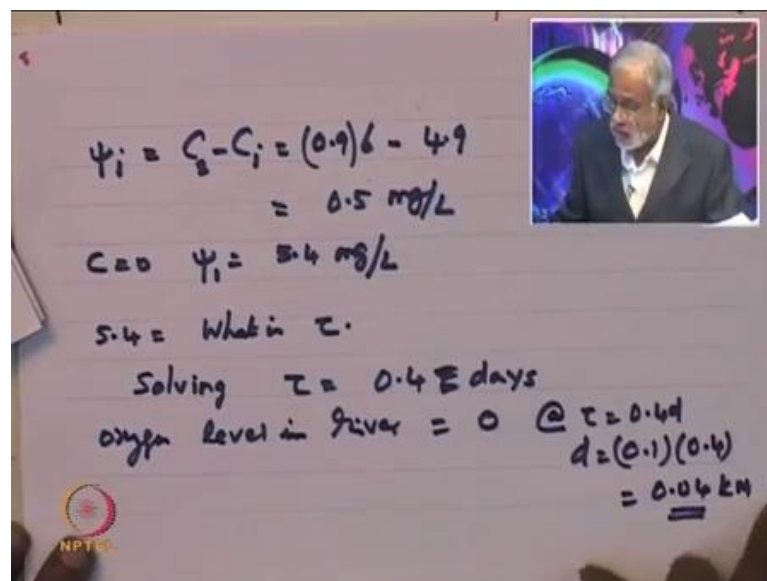 ψi = Cs - Ci = (0.9)6 - 4.9
= 0.5 mg/L
C=0 ψ1 = 5.4 mg/L
5.4 = What is τ.
Solving τ = 0.4 days
oxygen level in river = 0 @ τ = 0.4d
d = (0.1)(0.4)
= 0.04 KM
NPTEL